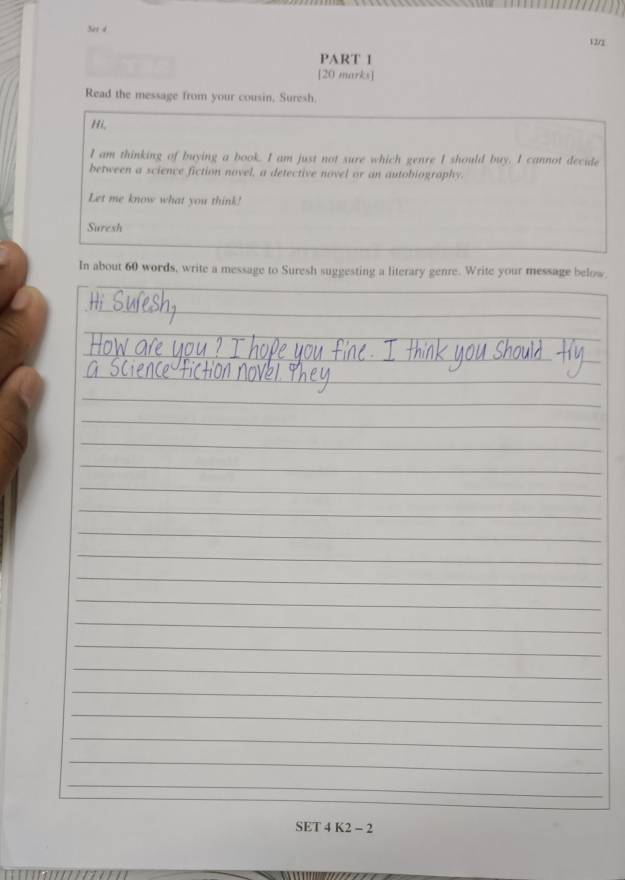 Set 4
12/2
PART 1
[20 marks]
Read the message from your cousin, Suresh.
Hi,
I am thinking of buying a book. I am just not sure which genre I should buy. I cannot decide
between a science fiction novel, a detective novel or an autobiography.
Let me know what you think!
Suresh
In about 60 words, write a message to Suresh suggesting a literary genre. Write your message below.
Hi Suresh,
How are you? I hope you fine. I think you should try
a science fiction novel. They
SET 4 K2 – 2